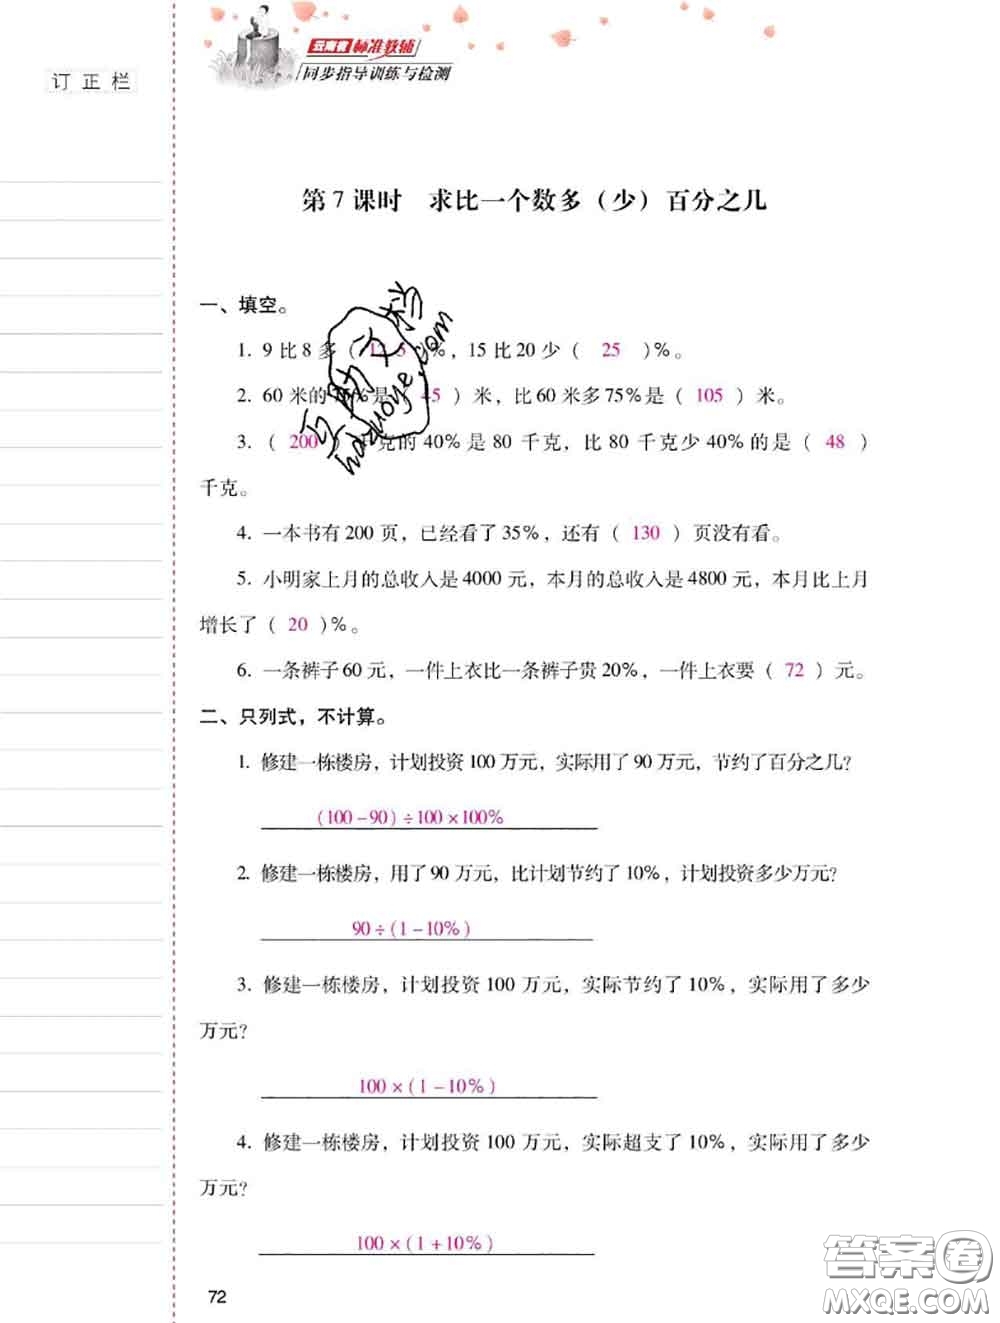 云南省标准教辅
同步指导训练与检测
订 正 栏
第 7 课时 求比一个数多（少）百分之几
一、填空。
1. 9 比 8 多（ )%，15 比 20 少（ 25 )%。
2. 60 米的 %是（ 45 ）米，比 60 米多 75%是（ 105 ）米。
3.（ 200 ）千克的 40% 是 80 千克，比 80 千克少 40% 的是（ 48 ）
千克。
4. 一本书有 200 页，已经看了 35%，还有（ 130 ）页没有看。
5. 小明家上月的总收入是 4000 元，本月的总收入是 4800 元，本月比上月
增长了（ 20 )%。
6. 一条裤子 60 元，一件上衣比一条裤子贵 20%，一件上衣要（ 72 ）元。
二、只列式，不计算。
1. 修建一栋楼房，计划投资 100 万元，实际用了 90 万元，节约了百分之几?
(100－90)÷100×100%
2. 修建一栋楼房，用了 90 万元，比计划节约了 10%，计划投资多少万元?
90÷(1－10%)
3. 修建一栋楼房，计划投资 100 万元，实际节约了 10%，实际用了多少
万元?
100×(1－10%)
4. 修建一栋楼房，计划投资 100 万元，实际超支了 10%，实际用了多少
万元?
100×(1＋10%)
72
答案圈
MXQE.COM